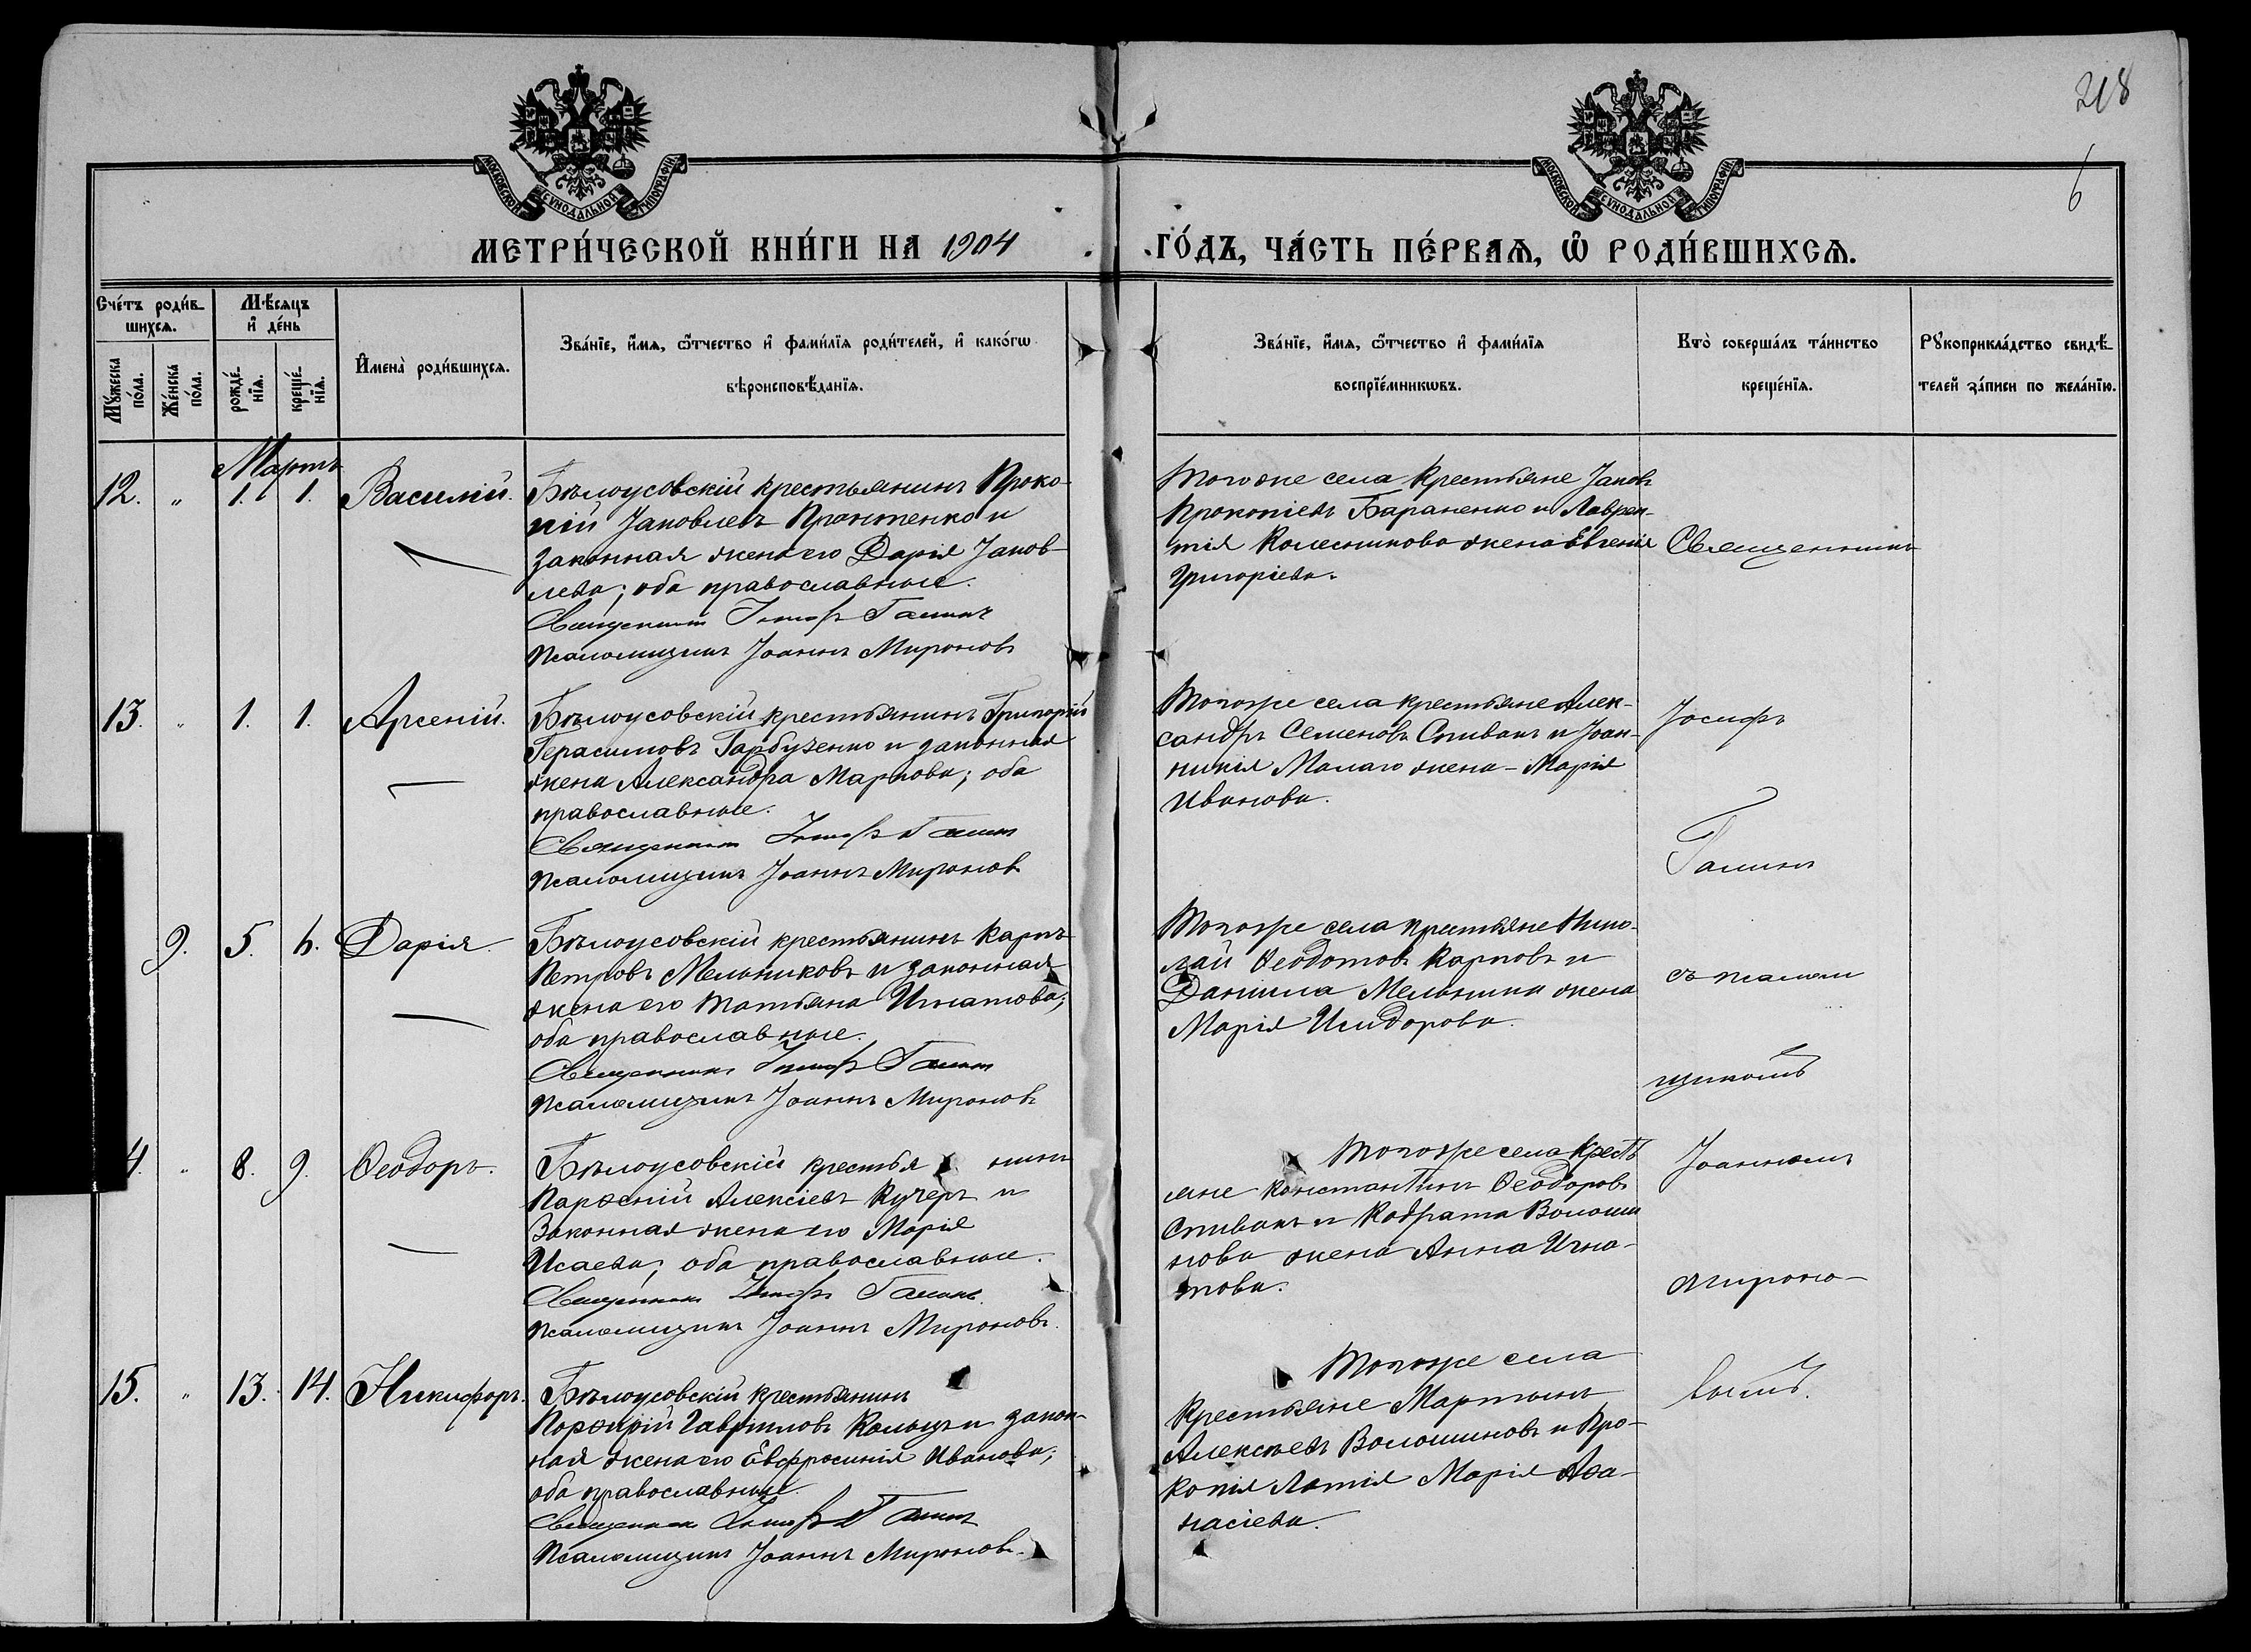 218
6
МОСКОВСКОЙ СѴНОДАЛЬНОЙ ТИПОГРАФІИ
МОСКОВСКОЙ СѴНОДАЛЬНОЙ ТИПОГРАФІИ
МЕТРИ́ЧЕСКОЙ КНИ́ГИ НА 1904
ГО́ДЪ, ЧА́СТЬ ПЕ́РВАѦ, Ѽ РОДИ́ВШИХСѦ.
Сче́тъ роди́в-
шихсѧ.
Мѣ́сѧцъ
и҆ де́нь
Мꙋ́жеска
по́ла.
Же́нска
по́ла.
рожде́-
нїѧ.
креще́-
нїѧ.
И҆мена̀ роди́вшихсѧ.
Зва́нїе, и҆́мѧ, ѻ҆́тчество и҆ фами́лїѧ роди́телей, и҆ како́гѡ
вѣроисповѣ́данїѧ.
Зва́нїе, и҆́мѧ, ѻ҆́тчество и҆ фами́лїѧ
воспрїе́мникѡвъ.
Кто̀ соверша́лъ та́инство
креще́нїѧ.
Рꙋкоприкла́дство свидѣ́-
телей за́писи по жела́нїю.
Мартъ
12. " 1. 1. Василій.
Бѣлоусовскій крестьянинъ Проко-
пій Іаковлевъ и
законная жена его Дарія Іаков-
лева; оба православные.
Священникъ Іосифъ Галинъ
Псаломщикъ Іоаннъ Мироновъ
Тогоже села крестьяне Іаковъ
Прокопіевъ Бараненко и Лаврен-
тія Колесникова жена Евгенія
Григоріева.
Священникъ
13. " 1. 1. Арсеній.
Бѣлоусовскій крестьянинъ Григорій
Герасимовъ Гарбузенко и законная
жена Александра Маркова; оба
православные.
Священникъ Іосифъ Галинъ
Псаломщикъ Іоаннъ Мироновъ
Тогоже села крестьяне Алек-
сандръ Семеновъ Спивакъ и Іоан-
никія Малаго жена - Марія
Иванова.
Іосифъ
Галинъ
9. 5. 6. Дарія
Бѣлоусовскій крестьянинъ Карпъ
Петровъ Мельниковъ и законная
жена его Татьяна Игнатова;
оба православные.
Священникъ Іосифъ Галинъ
Псаломщикъ Іоаннъ Мироновъ
Тогоже села крестьяне Нико-
лай Ѳеодотовъ Карповъ и
Даніила Мельника жена
Марія Исидорова.
съ псалом
щикомъ
4. " 8. 9. Ѳеодоръ.
Бѣлоусовскій крестья нинъ
Парѳеній Алексіевъ Кучеръ и
Законная жена его Марія
Исаева; оба православные.
Священникъ Іосифъ Галинъ.
Псаломщикъ Іоаннъ Мироновъ.
Тогоже села кресть
яне Константинъ Ѳеодоровъ
Спивакъ и Кодрата Волоши
нова жена Анна Игна-
това.
Іоанномъ
Мироно-
15. " 13. 14. Никифоръ.
Бѣлоусовскій крестьянинъ
Порфирій Гавріиловъ и закон-
ная жена его Евфросинія Иванова;
оба православные.
Священникъ Іосифъ Галинъ
Псаломщикъ Іоаннъ Мироновъ.
Тогоже села
Крестьяне Мартинъ
Алексѣевъ Волошиновъ и Про-
копія Марія Аѳа-
насіева.
вымъ.